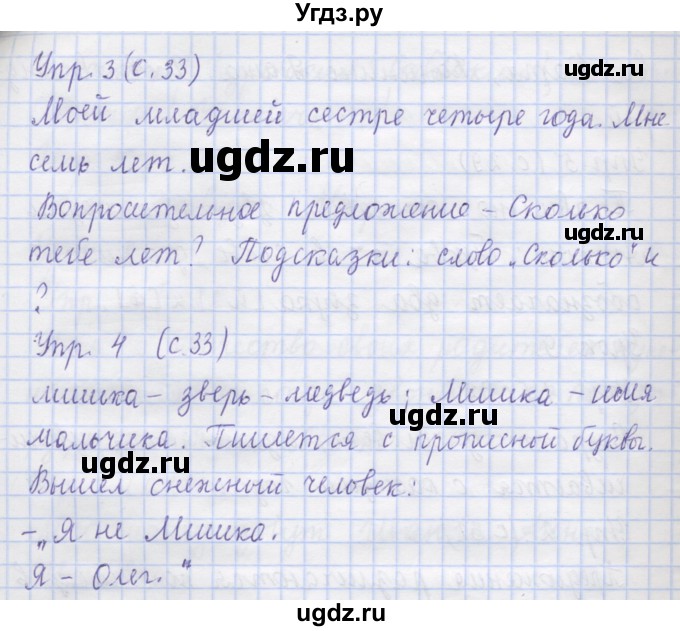 Угдз.ру
Упр. 3 (с. 33)
Моей младшей сестре четыре года. Мне
семь лет.
ugdz.ru
Вопросительное предложение – Сколько
тебе лет? Подсказки: слово „Сколько" и
?
Упр. 4 (с. 33)
мишка – зверь – медведь; Мишка – имя
ugdz.ru
мальчика. Пишется с прописной буквы.
ugdz.ru
Вышел снежный человек:
– „Я не Мишка.
Я – Олег."
ugdz.ru